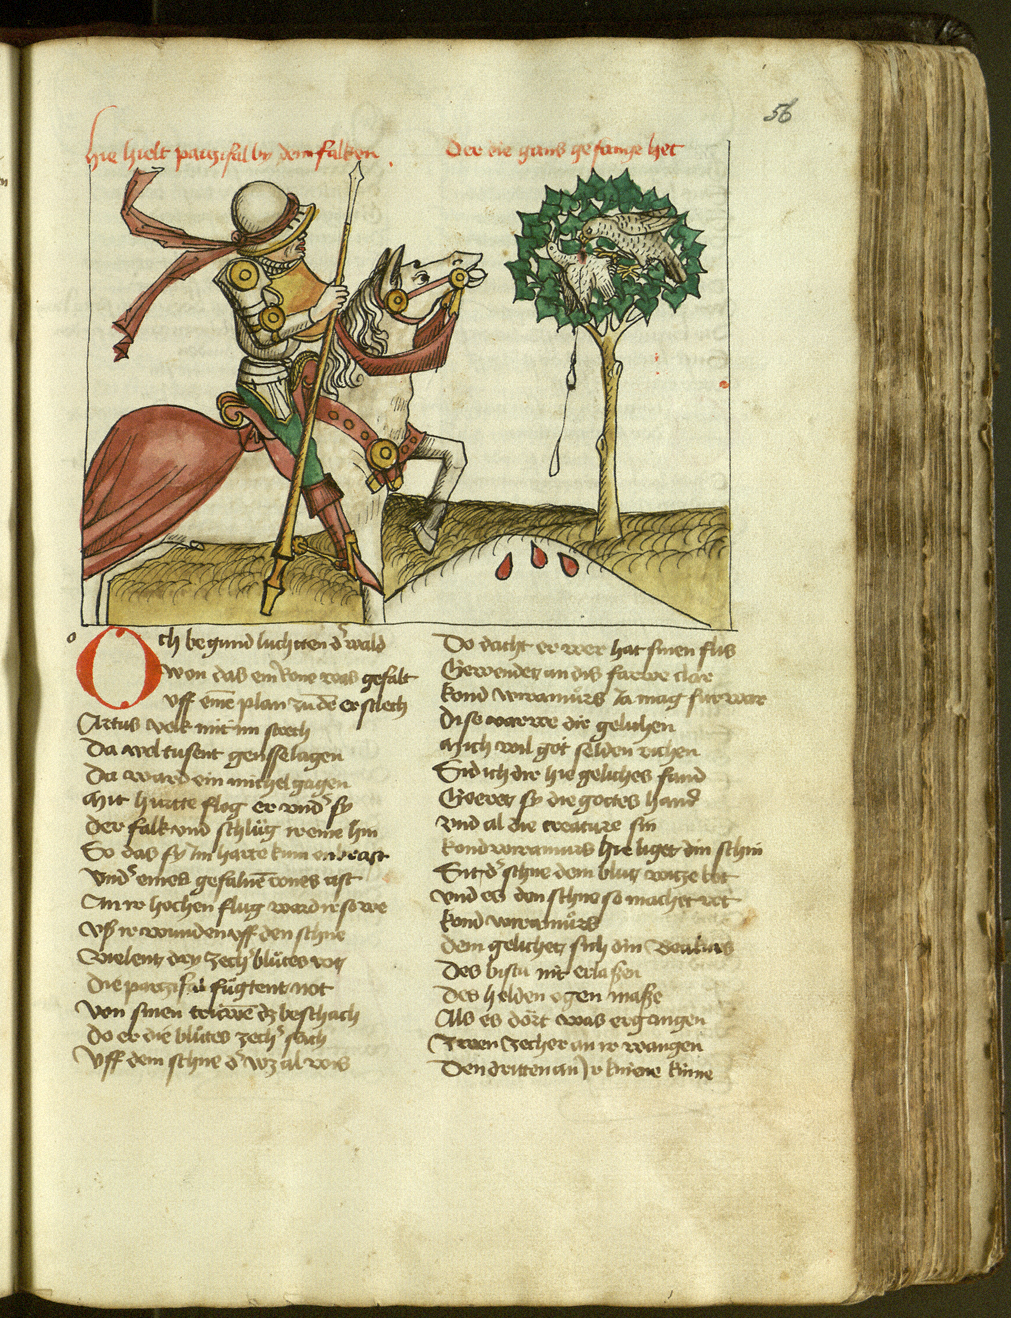 56
hie hielt partzifal by dem falken
Der die gans gefange het
Och begund luchtten dˢ wald
Won das ein rone was gefalt
Vff eine plan zu de er stlech
Artus valk mit im strech
Da wol tusent gensse lagen
Da ward ein michel gagen
Mit hurtte flog er vndˢ sy
Der falk vnd schlug ir eine hin
So das sy im harte kum enbrast
Vndˢ eines gefalnē rones ast
An ir hochen flug ward ir so we
Vß ir wunden vff den schne
Vielent dry zechˢ blutes rot
Die partzifal fugtent not
Von sinen trüwē dz beschach
do er die blutes zechˢ sach
Vff dem schne dˢ wz al wis
Do dacht er wer hat sinen flis
Gewendet an dis farwe clar
kond wiramurs ia mag fur war
Dise varwe die gelichen
Mich wil got selden richen
Sid ich dir hie geliches fand
Geeret sy die gottes hand
vnd al die creature sin
kond wiramurs hie liget din schin
Sit dˢ schne dem blut witze bot
vnd es den schne so machet rot
kond wiramurs
dem gelichet sich din beakurs
Des bistu nit erlaßen
Des helden ogen maße
Als es dort was ergangen
Zwen zecher an ir wangen
Den dritten an ir kinne